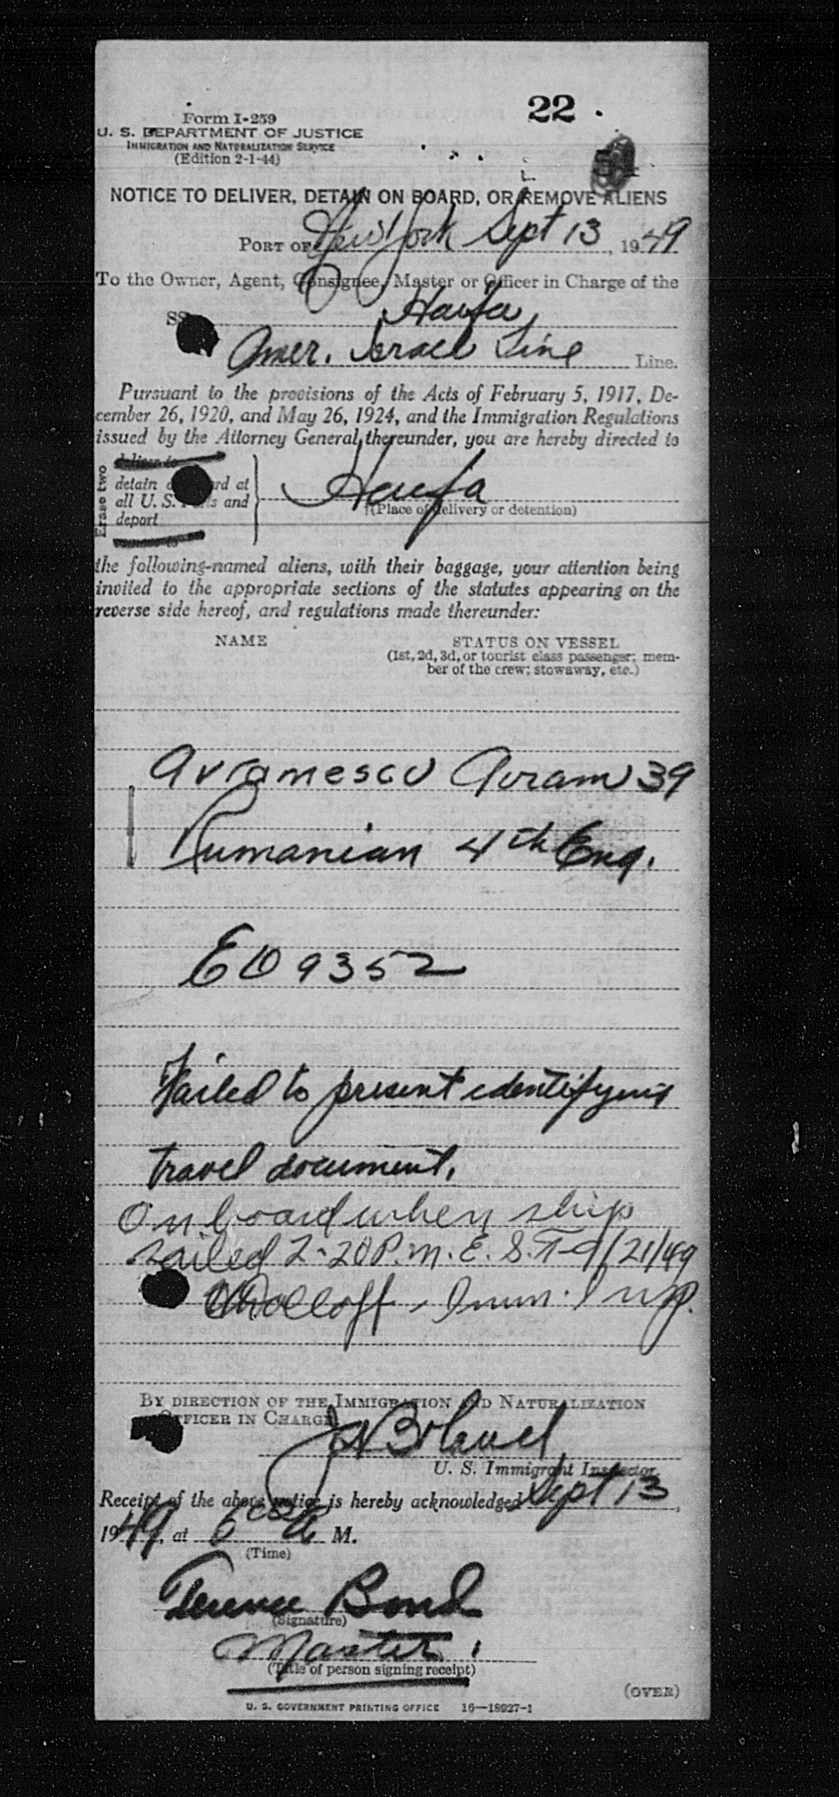 22
Form I-259
U. S. DEPARTMENT OF JUSTICE
IMMIGRATION AND NATURALIZATION SERVICE
(Edition 2-1-44)
NOTICE TO DELIVER, DETAIN ON BOARD, OR REMOVE ALIENS
PORT OF New York Sept 13, 1949
To the Owner, Agent, Consignee, Master or Officer in Charge of the
SS Haifa
Amer. Israel Line Line.
Pursuant to the provisions of the Acts of February 5, 1917, De-
cember 26, 1920, and May 26, 1924, and the Immigration Regulations
issued by the Attorney General thereunder, you are hereby directed to
deliver to
detain on board at
all U. S. Ports and
deport
remove to
Erase two
Haifa
(Place of delivery or detention)
the following-named aliens, with their baggage, your attention being
invited to the appropriate sections of the statutes appearing on the
reverse side hereof, and regulations made thereunder:
NAME STATUS ON VESSEL
(1st, 2d, 3d, or tourist class passenger; mem-
ber of the crew; stowaway, etc.)
Avramescu Avram 39
Rumanian 4th Eng.
EO 9352
Failed to present identifying
travel document.
On board when ship
sailed 2-20 P.M. E.S.T. 9/21/49
Imm. Insp.
BY DIRECTION OF THE IMMIGRATION AND NATURALIZATION
OFFICER IN CHARGE
U. S. Immigrant Inspector.
Receipt of the above notice is hereby acknowledged Sept 13,
1949, at 6 A M.
(Time)
Terence Bond
(Signature)
Master.
(Title of person signing receipt)
(OVER)
U. S. GOVERNMENT PRINTING OFFICE 16—18927-1